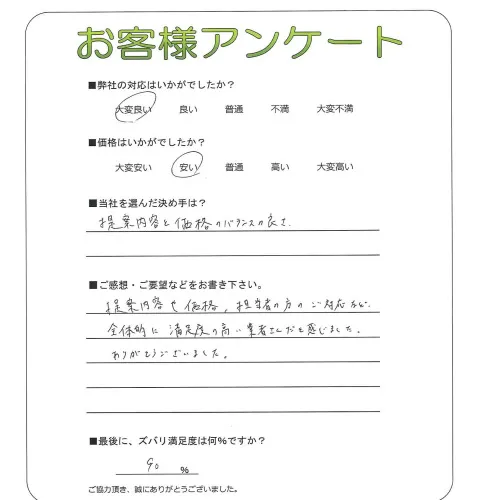 お客様アンケート
■弊社の対応はいかがでしたか？
大変良い 良い 普通 不満 大変不満
■価格はいかがでしたか？
大変安い 安い 普通 高い 大変高い
■当社を選んだ決め手は？
提案内容と価格のバランスの良さ.
■ご感想・ご要望などをお書き下さい。
提案内容や価格，担当者の方のご対応など、
全体的に満足度の高い業者さんだと感じました。
ありがとうございました。
■最後に、ズバリ満足度は何%ですか？
90 %
ご協力頂き、誠にありがとうございました。